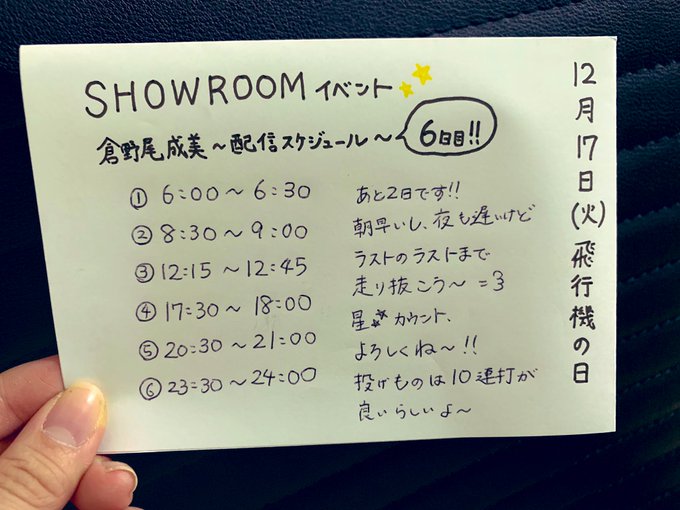 SHOWROOM イベント
倉野尾成美～配信スケジュール～ 6日目!!
① 6:00～6:30
② 8:30～9:00
③ 12:15～12:45
④ 17:30～18:00
⑤ 20:30～21:00
⑥ 23:30～24:00
あと2日です!!
朝早いし、夜も遅いけど
ラストのラストまで
走り抜こう～ =3
星 カウント、
よろしくね～!!
投げものは10連打が
良いらしいよ～
12月17日(火)飛行機の日